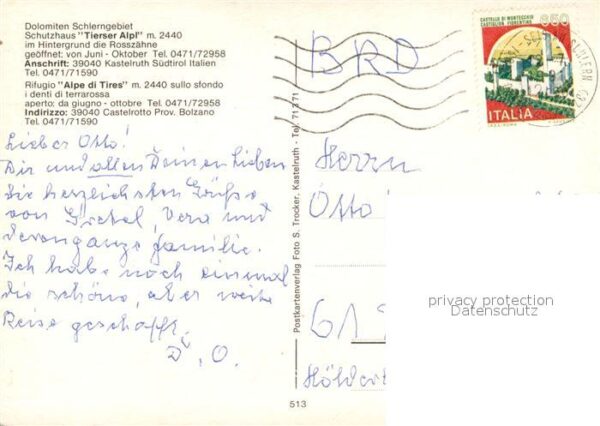 Dolomiten Schlerngebiet
Schutzhaus "Tierser Alpl" m. 2440
im Hintergrund die Rosszähne
geöffnet: von Juni - Oktober Tel. 0471/72958
Anschrift: 39040 Kastelruth Südtirol Italien
Tel. 0471/71590
Rifugio "Alpe di Tires" m. 2440 sullo sfondo
i denti di terrarossa
aperto: da giugno - ottobre Tel. 0471/72958
Indirizzo: 39040 Castelrotto Prov. Bolzano
Tel. 0471/71590
Lieber Otto!
Dir und allen Deinen Lieben
die herzlichsten Grüße
von Gretel, Vera und
der ganze Familie.
Ich habe noch einmal
die schöne, aber weite
Reise geschafft.
D. O.
513
Postkartenverlag Foto S. Trocker, Kastelruth - Tel. 71271
BRD
CASTELLO DI MONTECCHIO
CASTIGLION FIORENTINO
650
ITALIA
Herrn
Otto
61
privacy protection
Datenschutz